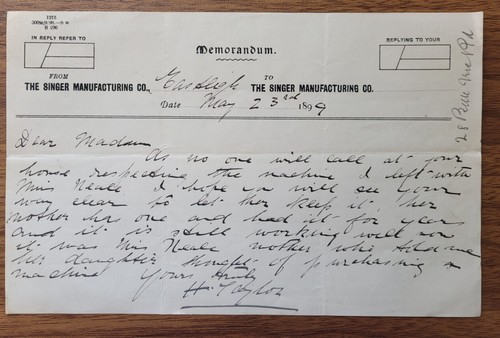 Memorandum.
IN REPLY REFER TO
REPLYING TO YOUR
FROM
TO
THE SINGER MANUFACTURING CO., Eastleigh THE SINGER MANUFACTURING CO.
Date May 23rd 1899
Dear Madam
As no one will call at your
house respecting the machine I left with
Miss Neale I hope you will see your
way clear to let her keep it, her
mother has one and had it for years
and it is still working well now
it was Miss Neale mother who told me
her daughter thought of purchasing a
machine Yours truly
H. Taylor